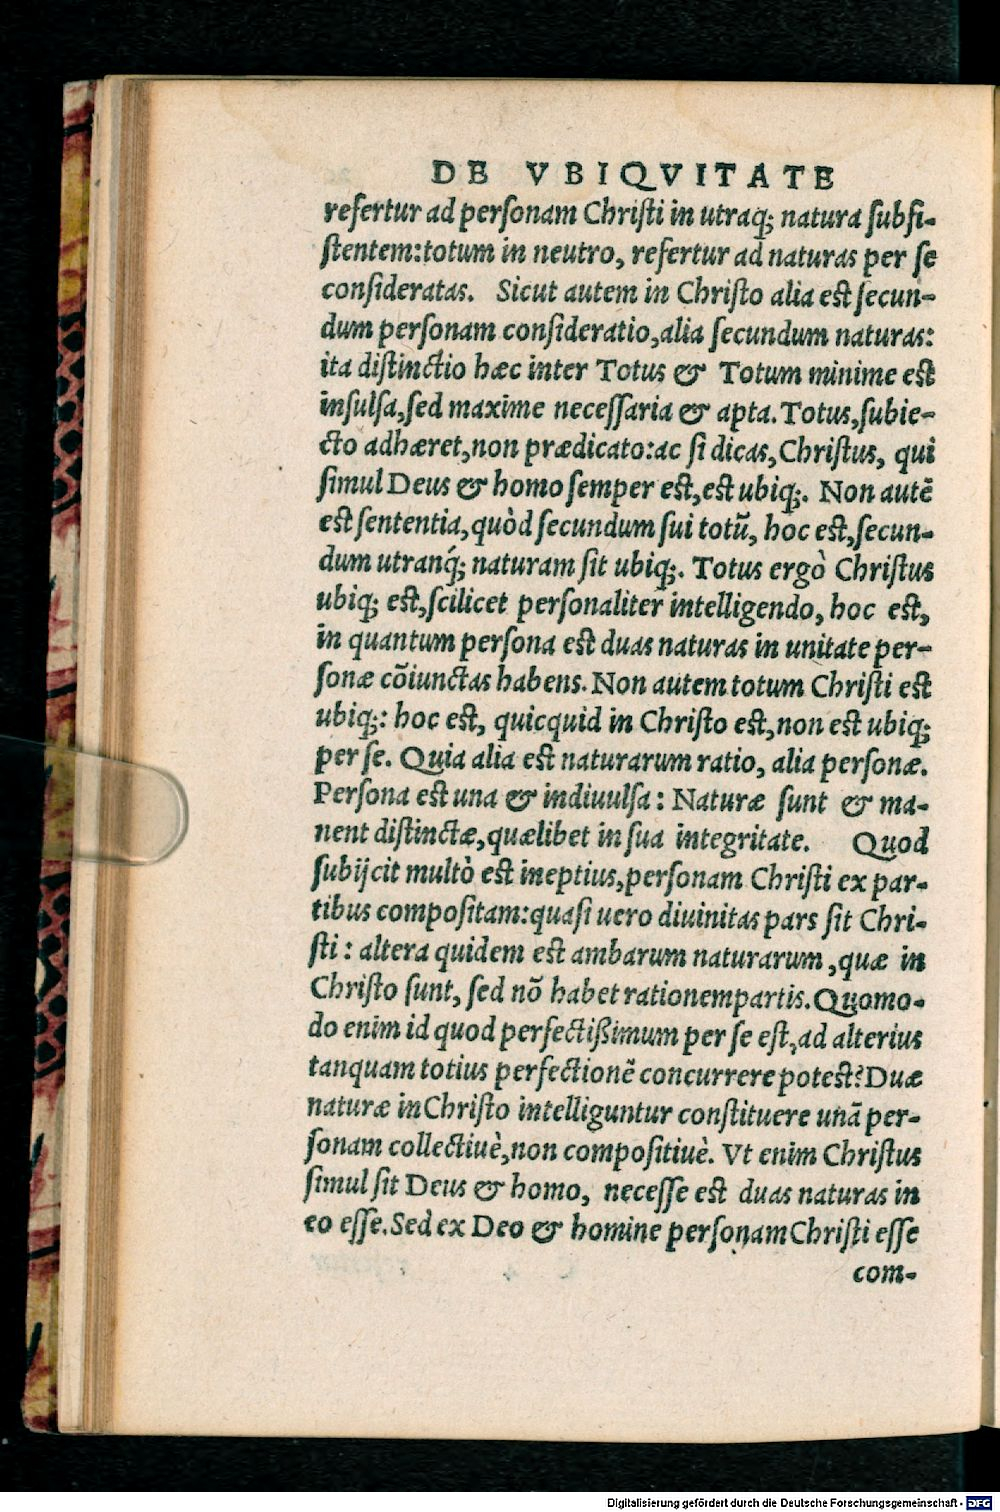 DE VBIQVITATE
refertur ad perſonam Chriſti in utraq; natura ſubſi-
ſtentem: totum in neutro, refertur ad naturas per ſe
conſideratas. Sicut autem in Chriſto alia eſt ſecun-
dum perſonam conſideratio, alia ſecundum naturas:
ita diſtinctio hæc inter Totus & Totum minime eſt
inſulſa, ſed maxime neceſſaria & apta. Totus, ſubie-
cto adhæret, non prædicato: ac ſi dicas, Chriſtus, qui
ſimul Deus & homo ſemper eſt, eſt ubiq;. Non autẽ
eſt ſententia, quòd ſecundum ſui totũ, hoc eſt, ſecun-
dum utranq́; naturam ſit ubiq;. Totus ergò Chriſtus
ubiq; eſt, ſcilicet perſonaliter intelligendo, hoc eſt,
in quantum perſona eſt duas naturas in unitate per-
ſonæ cõiunctas habens. Non autem totum Chriſti eſt
ubiq;: hoc eſt, quicquid in Chriſto eſt, non eſt ubiq;
per ſe. Quia alia eſt naturarum ratio, alia perſonæ.
Perſona eſt una & indiuulſa: Naturæ ſunt & ma-
nent diſtinctæ, quælibet in ſua integritate. Quod
ſubijcit multò eſt ineptius, perſonam Chriſti ex par-
tibus compoſitam: quaſi uero diuinitas pars ſit Chri-
ſti: altera quidem eſt ambarum naturarum, quæ in
Chriſto ſunt, ſed nõ habet rationem partis. Quomo-
do enim id quod perfectißimum per ſe eſt, ad alterius
tanquam totius perfectionẽ concurrere poteſt? Duæ
naturæ in Chriſto intelliguntur conſtituere unã per-
ſonam collectiuè, non compoſitiuè. Vt enim Chriſtus
ſimul ſit Deus & homo, neceſſe eſt duas naturas in
eo eſſe. Sed ex Deo & homine perſonam Chriſti eſſe
com-
Digitalisierung gefördert durch die Deutsche Forschungsgemeinschaft - DFG